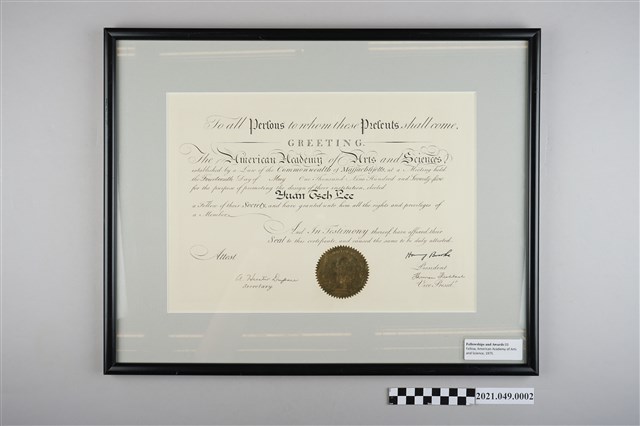 To all Persons to whom these Presents shall come,
GREETING.
The American Academy of Arts and Sciences
established by a Law of the Commonwealth of Massachusetts, at a Meeting held
the Fourteenth Day of May One Thousand Nine Hundred and Seventy five
for the purpose of promoting the design of their institution, elected
Yuan Tseh Lee
a Fellow of their Society, and have granted unto him all the rights and privileges of
a Member.
And In Testimony thereof have affixed their
Seal to this certificate and caused the same to be duly attested.
Attest
Harvey Brooks
President
Secretary
Vice Presid
Fellowships and Awards
Fellow, American Academy of Arts
and Science, 1975.
2021.049.0002